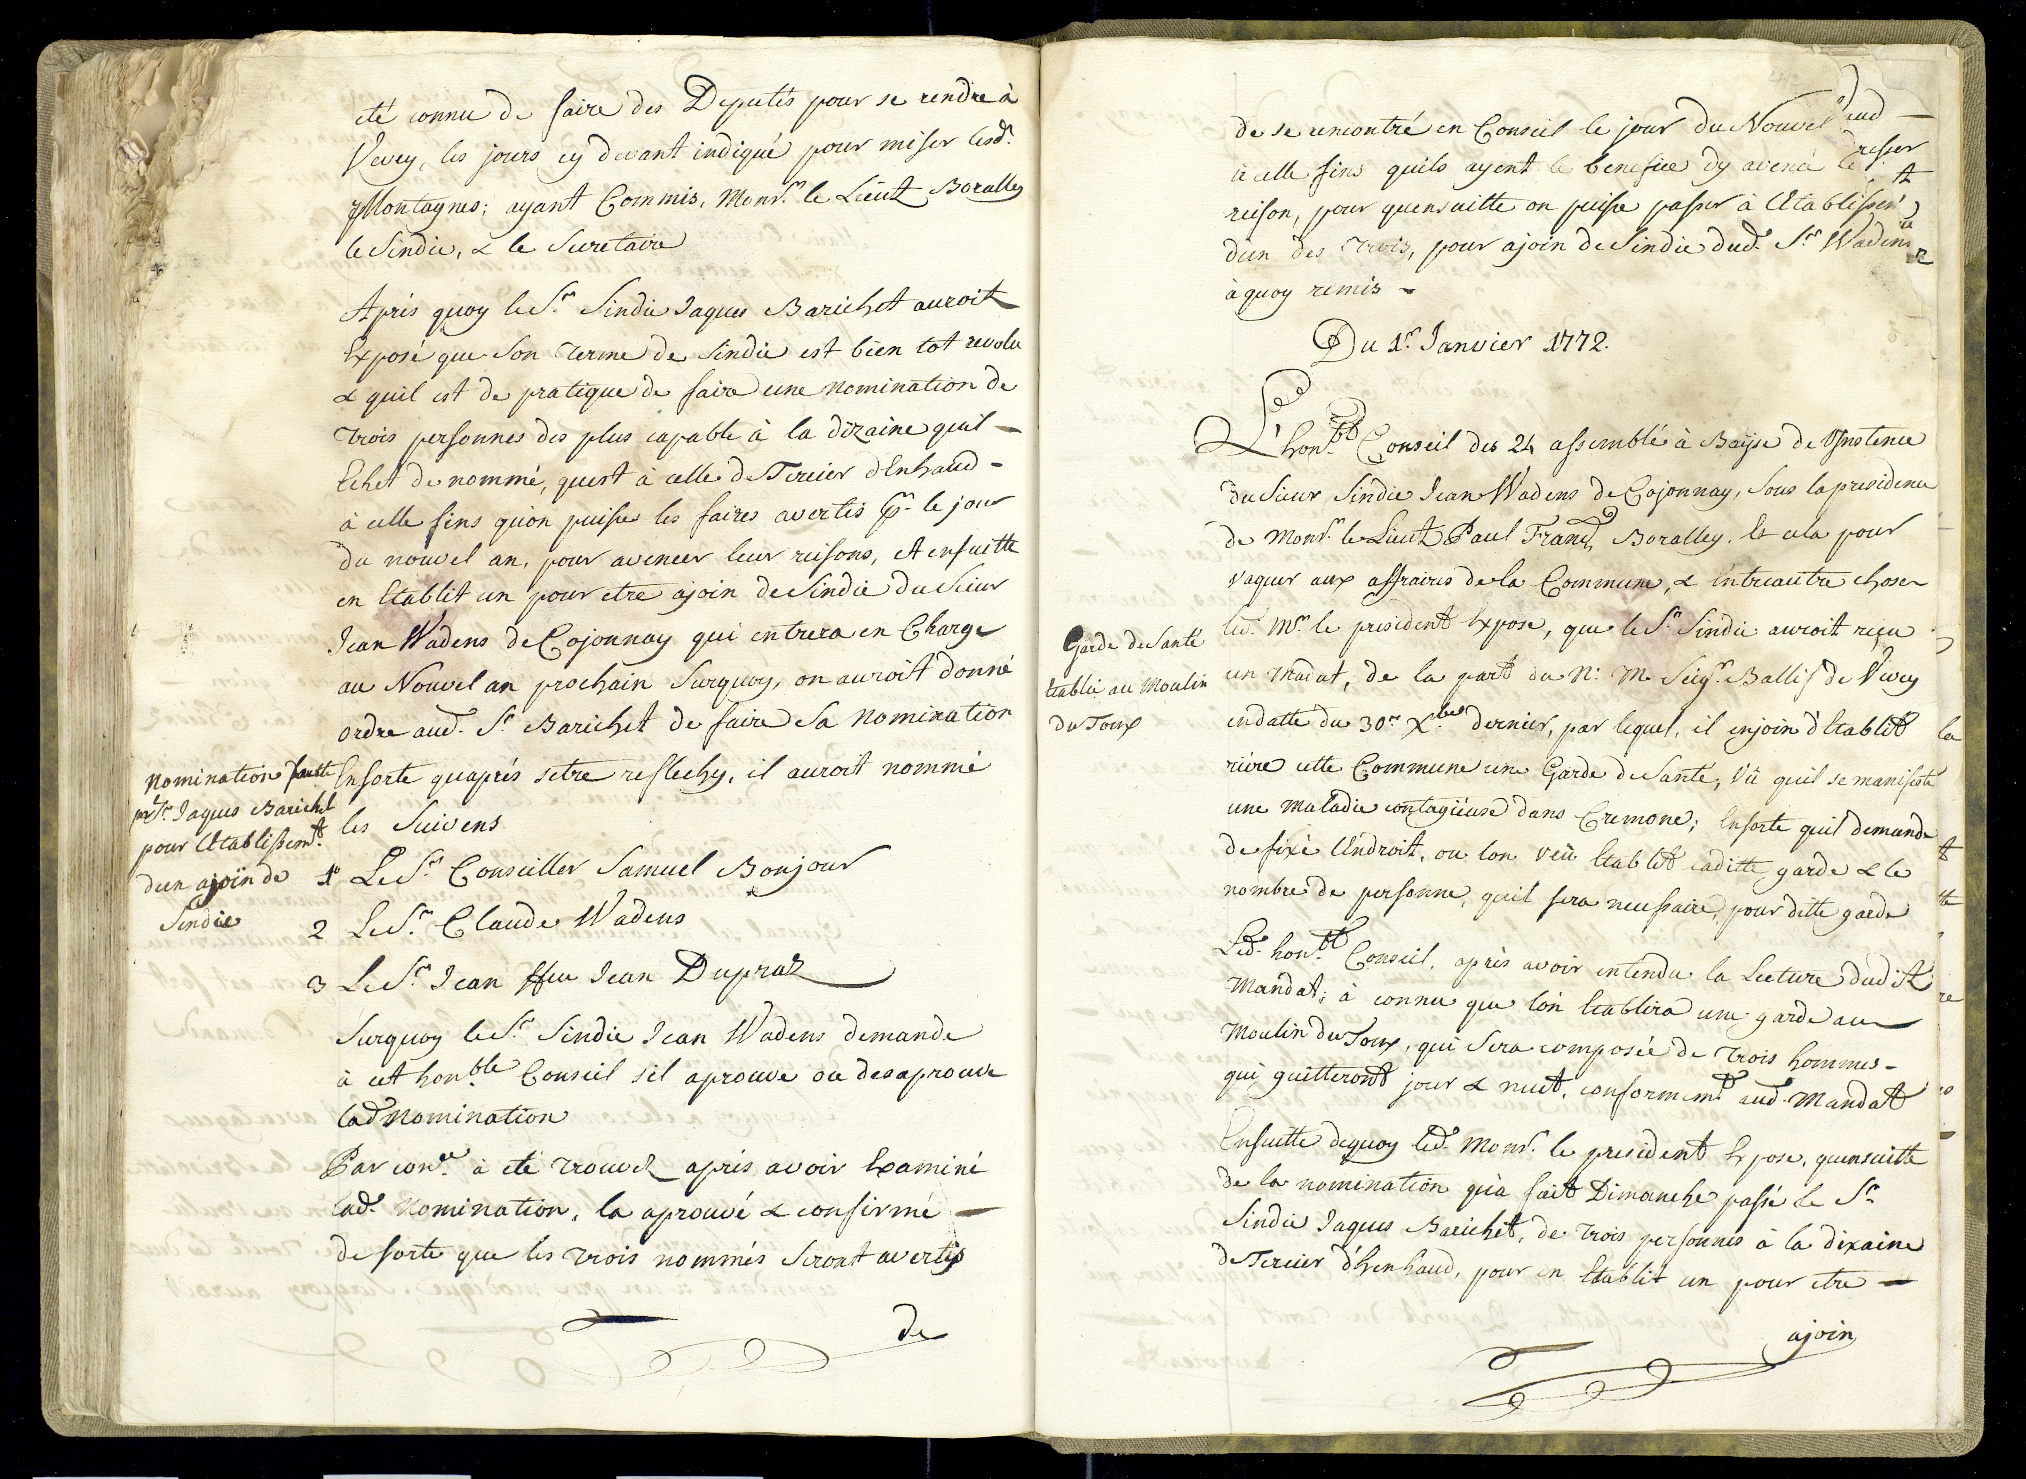 été connu de faire des Deputés pour se rendre à
Vevey, les jours cy devant indiqué pour miser lesd.
Montagnes; ayant Commis, Monsr. le Lieut Boralley
le Sindic, & le Secretaire
Après quoy le Sr. Sindic Jaques Barichet auroit
Exposé que Son Terme de Sindic est bien tot revolu
& quil est de pratique de faire une nomination de
trois personnes des plus capable à la dizaine quil –
Echet de nommé, quest à celle de Tercier d'Enhaud –
à celle fins qu'on puisse les faires avertis pr. le jour
du nouvel an, pour avencer leur reisons, Et ensuitte
en Etablit un pour etre ajoin de Sindic du Sieur
Jean Wadens de Cojonnay qui entrera en Charge
au Nouvel an prochain Surquoy, on auroit donné
ordre aud. Sr. Barichet de faire Sa Nomination
Nomination faitte
pr. Sr. Jaques Barichet
pour l'Etablissemt.
d'un ajoin de
Sindic
Ensorte qu'après setre reflechy, il auroit nommé
les Suivens
1° Le Sr. Conseiller Samuel Bonjour
2 Le Sr. Claude Wadens
3 Le Sr. Jean ffeu Jean Dupraz
Surquoy le Sr. Sindic Jean Wadens demande
à cet honble. Conseil s'il aprouve ou desaprouve
lad Nomination
Par conce. à été trouvé après avoir Examiné
lad. Nomination, la aprouvé & confirmé –
de sorte que les trois nommés Seront avertis
de
de se rencontré en Conseil le jour du Nouvel
à celle fins quils ayent le benefice dy avencé
reison, pour quensuitte on puisse passer à l'Etablissemt
d'un des trois, pour ajoin de Sindic dud. Sr. Wadens
à quoy remis –
Du 1r. Janvier 1772.
L'honble. Conseil des 24 assemblé à Bayse de l'Instence
du Sieur Sindic Jean Wadens de Cojonnay, Sous la presidence
de Monsr. le Lieut Paul Franç. Boralley. Et cela pour
vaquer aux affraires de la Commune, & Entreautre chose
led. Mr. le president Expose, que le Sr. Sindic auroit reçu
Garde de Santé
Etablie au Moulin
du Toux
un Madat, de la part du N: M. Seigr. Ballif de Vevey
en datte du 30e. Xbre dernier, par lequel, il enjoin d'Etablit
riere cette Commune une Garde de Santé, Vû quil se manifeste
une Maladie contagieuse dans Cremone; Ensorte quil demande
de fixé l'Endroit, ou lon veü Etablit laditte garde & le
nombre de personne, quil sera necessaire, pour ditte garde
Led. honble. Conseil, après avoir entendu la Lecture dudit
Mandat; à connu que l'on Etablira une garde au
Moulin du Toux, qui Sera composée de trois hommes –
qui guitteront jour & nuit, conformemt. aud. Mandatt
Ensuitte dequoy led. Monsr. le president Expose, quensuitte
de la nomination qu'a fait Dimanche passé le Sr.
Sindic Jaques Barichet, de trois personnes à la dixaine
de Tercier d'henhaud, pour en Etablit un pour etre –
ajoin